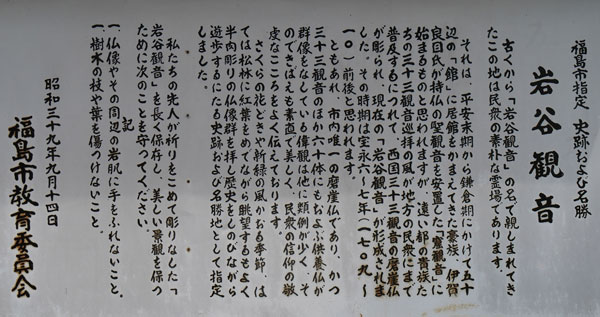 福島市指定 史跡および名勝
岩谷観音
古くから「岩谷観音」の名で親しまれてき
たこの地は民衆の素朴な霊場であります。
それは、平安末期から鎌倉期にかけて五十
辺の「館」に居館をかまえてきた豪族、伊賀
良目氏が持仏の聖観音を安置した「窟観音」に
始まるものと思われますが、遠い都の貴族た
ちの三十三観音巡拝の風が地方の民衆にまで
普及するにつれて、西国三十三観音の磨崖仏
が彫られ、現在の「岩谷観音」が形成されま
した。その時期は宝永六〜七年(一七〇九〜
一〇)前後と思われます。
ともあれ、市内唯一の磨崖仏であり、かつ
三十三観音のほか六十体にもおよぶ供養仏が
群像をなしている偉観は他に類例が少く、そ
のできばえも素直で美しく、民衆の信仰の敬
虔なこころをよく伝えております。
さくらの花どきや新緑の風かおる季節、は
ては松林に紅葉をめでながら眺望するもよく
半肉彫りの仏像群を拝し歴史をしのびながら
遊歩するにたる史跡および名勝地として指定
しました。
私たちの先人が祈りをこめて彫りなした「
岩谷観音」を長く保存し、美しい景観を保つ
ために次のことを守ってください。
記
一、仏像やその周辺の岩肌に手をふれないこと。
一、樹木の枝や葉を傷つけないこと。
昭和三十九年九月十四日
福島市教育委員会